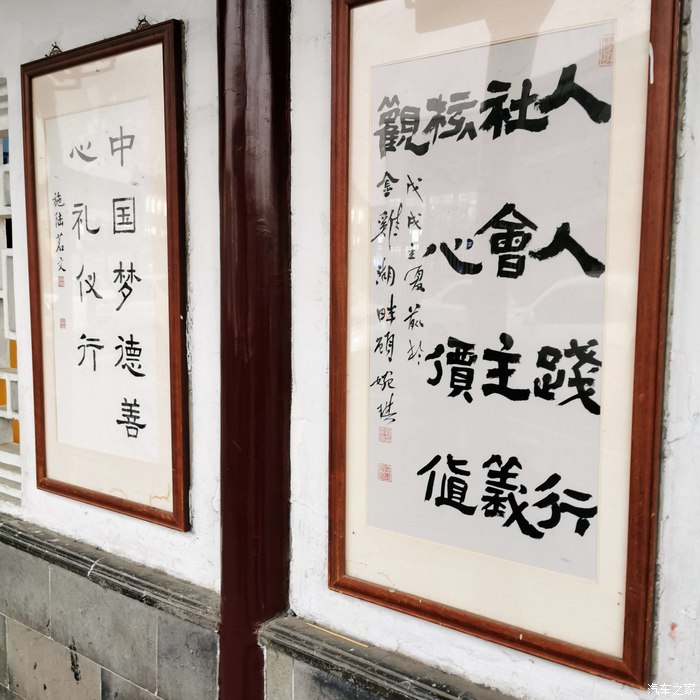 人人踐行
社會主義
核心價值
觀
戊戌夏於
金雞湖畔顧婉琪
中国梦德善
心礼仪行
施陆茗文
汽车之家